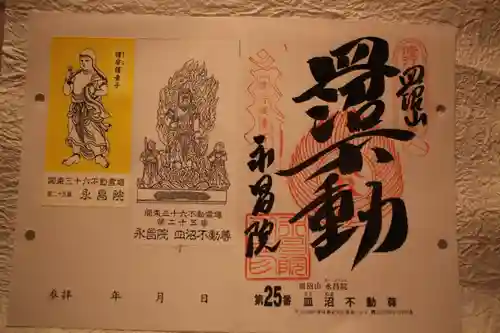 関東三十六不動霊場
第二十五番 永昌院
関東三十六不動霊場
第二十五番
永昌院 皿沼不動尊
参拝 年 月 日
皿沼山
皿沼不動
永昌院
皿沼山 永昌院
第25番 皿沼不動尊